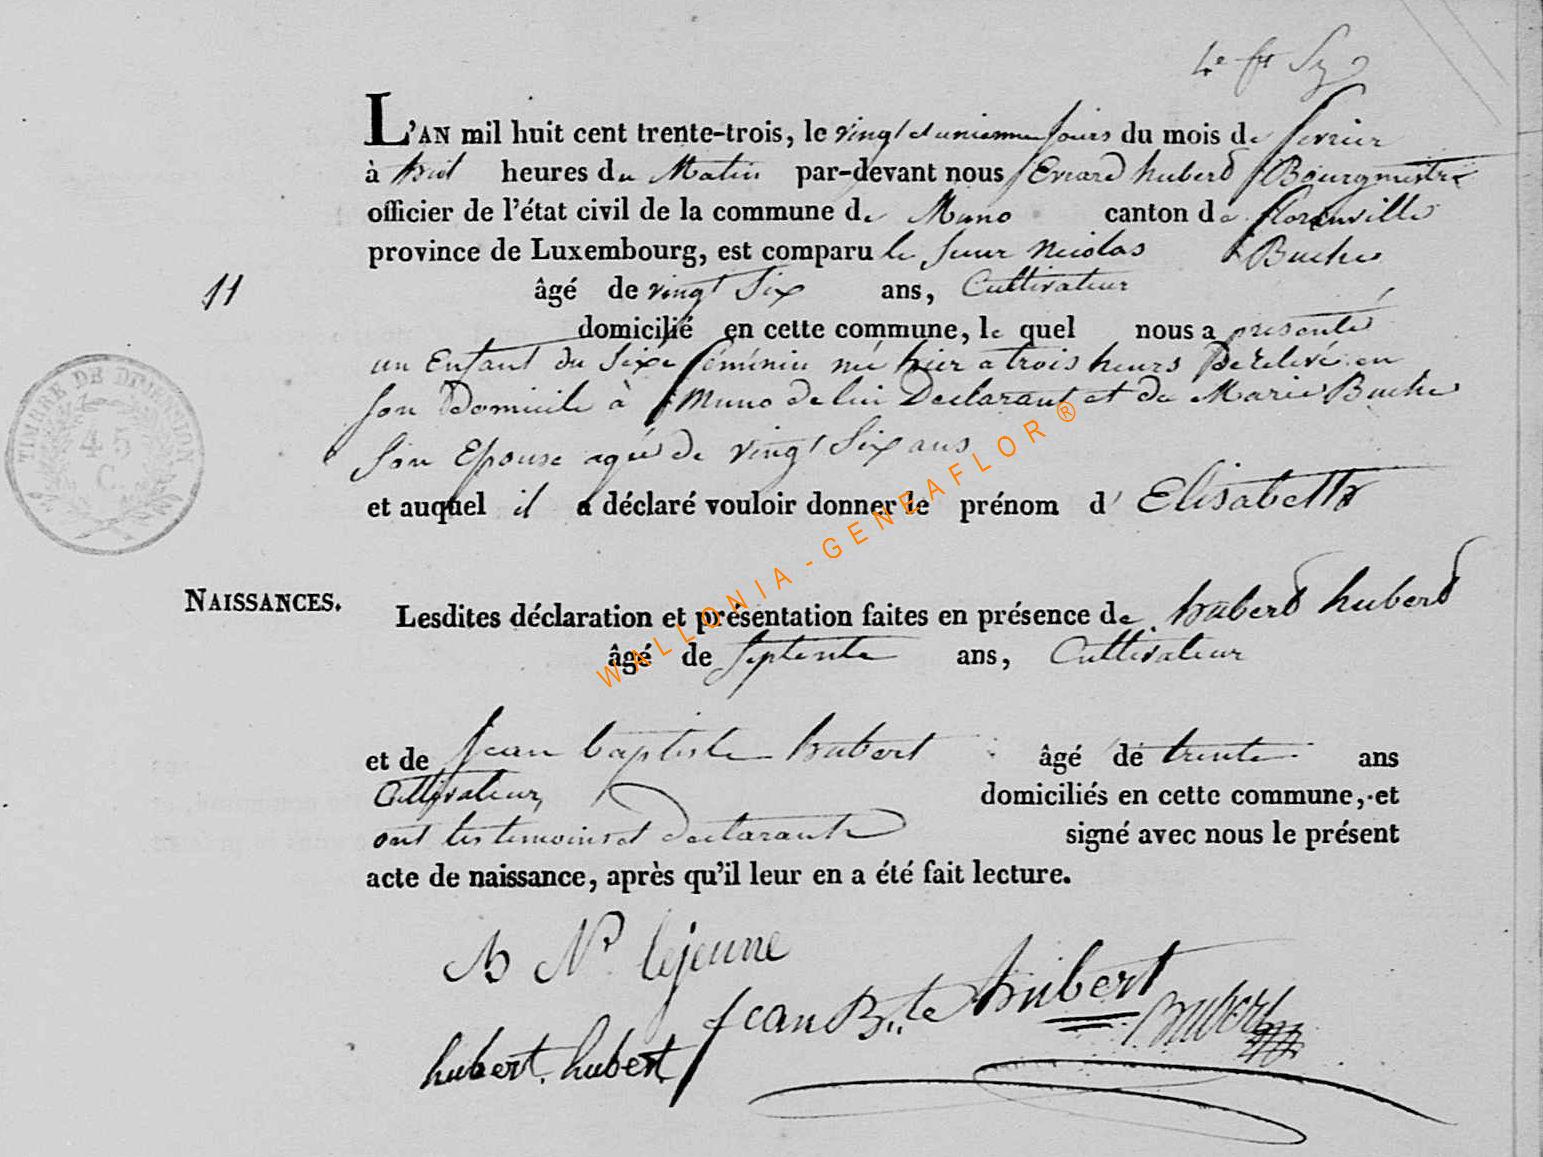 4e ft
L'AN mil huit cent trente-trois, le vingt et unieme jours du mois de fevrier
à huit heures du Matin par-devant nous Evrard hubert Bourgmestre
officier de l'état civil de la commune de Muno canton de florenville
province de Luxembourg, est comparu le sieur Nicolas Buche
11
âgé de vingt Six ans, Cultivateur
domicilié en cette commune, le quel nous a présenté
un Enfant du Sexe féminin né hier a trois heurs De relevé en
son Domicile à Muno de lui Declarant et de Marie Buche
Son Epouse agée de vingt Six ans
et auquel il a déclaré vouloir donner le prénom d' Elisabeth
TIMBRE DE DIMENSION
45
C.
NAISSANCES.
Lesdites déclaration et présentation faites en présence de hubert hubert
âgé de Septente ans, Cultivateur
et de Jean baptiste hubert âgé de trente ans
Cultivateur domiciliés en cette commune, et
ont les temoins et declarants signé avec nous le présent
acte de naissance, après qu'il leur en a été fait lecture.
lejeune
Jean Bte hubert
hubert
hubert. hubert
WALLONIA - GENEAFLOR ®